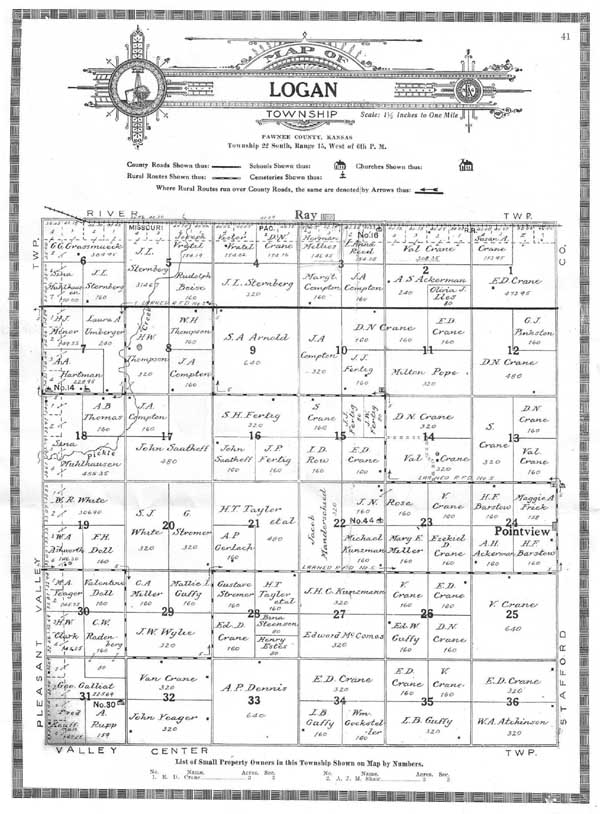 41
MAP OF
LOGAN
TOWNSHIP
Scale: 1½ Inches to One Mile
PAWNEE COUNTY, KANSAS
Township 22 South, Range 15, West of 6th P. M.
County Roads Shown thus: Schools Shown thus: Churches Shown thus:
Rural Routes Shown thus: Cemeteries Shown thus:
Where Rural Routes run over County Roads, the same are denoted by Arrows thus:
RIVER Ray TWP.
TWP. CO.
MISSOURI PAC. R.R.
No.16
6
J.L. Sternberg 160
5
J.L. Sternberg
Joseph Vratil
Vratil
Rudolph Boise 160
4
D.N. Crane
J.L. Sternberg 320
3
Herman Millies
Anna Reed
Margt. Compton 160
J.A. Compton 160
2
Val Crane
A S Ackerman 240
Olivia J. Lles 80
1
Susan A. Crane
E.D. Crane
LARNED R.F.D. No.2
7
H.J.
Laura A Umberger 240
A.A. Hartman
No.14
8
H.W. Thompson 320
W.H Thompson 160
J.A Compton 160
Creek
9
S.A Arnold 640
10
J.A Compton 320
D.N Crane
J.J. Fertig 160
11
E.D. Crane 160
Milton Pope 320
12
G.J. Pinkston 160
D.N. Crane 480
18
A B Thomas 160
Sina Muhlhausen 455.35
Pickle
17
J.A. Compton 160
John Saathoff 480
16
S.H. Fertig 320
John Saathoff 160
J.P. Fertig 160
15
S Crane 160
J.J. Fertig 80
Fertig 80
I.D. Row 160
E.D Crane 160
14
D.N. Crane 320
Val Crane 320
13
S. Crane 320
D.N Crane 160
Val. Crane 160
LARNED R.F.D. No.5
19
W.R. White 306.40
W.A Ashworth
F.H. Doll 160
20
S.J White 320
G. Stromer 320
21
H.T. Taylor et al 480
A.P Gerlach 160
22
Jacob Manderscheid 320
J.N. Rose
No.44
Michael Kunzman 160
23
V. Crane 160
Mary E. Miller 160
Ezekiel D Crane 160
24
H.F. Barstow 160
Maggie A Freck 158
Pointview
A.H. Ackerman 160
H.F. Barstow 160
LARNED R.F.D. No.5
30
M.A. Yeager
Valentine Doll 160
H.W. Clark
C.W. Radenberg 160
29
C.A Miller 160
Mollie I. Gaffy 160
J.W. Wylie 320
28
Gustave Stromer 160
H.T Taylor et al 160
Ed. D. Crane 160
Bena Steenson 80
Henry Estes 80
27
J.H.C. Kunzmann 320
Edward McComas 320
26
V. Crane 160
E.D. Crane 160
Ed. W Gaffy 160
D.N. Crane 160
25
V. Crane 640
31
Geo. Galliat
No.30
Fred Kauffman
A. Rupp 159
32
Van Crane 320
John Yeager 320
33
A.P. Dennis 640
34
E.D. Crane 320
I.B Gaffy 160
Wm. Gockstetler 160
35
E.D. Crane 160
V. Crane 160
I.B. Gaffy 320
36
E.D. Crane 320
W.A. Atchinson 320
PLEASANT VALLEY
STAFFORD
VALLEY CENTER TWP.
List of Small Property Owners in this Township Shown on Map by Numbers.
No. Name. Acres. Sec. No. Name. Acres. Sec.
1. E. D. Crane 3 2 2. A. J. M. Shaw 3 2